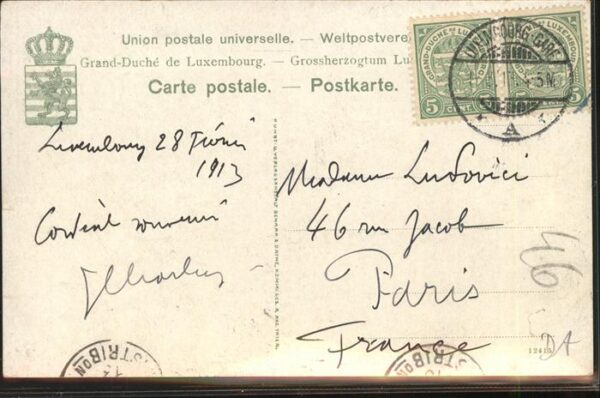 Union postale universelle. — Weltpostvere
Grand-Duché de Luxembourg. — Grossherzogtum Lu
Carte postale. — Postkarte.
GRAND-DUCHÉ DE LUXEMBOURG
5 CENT. 5
LUXEMBOURG-GARE
A
Luxembourg 28 Février
1913
Cordial souvenir
Madame Ludovici
46 rue Jacob
Paris
France
46
12415
DA
STRIBON
STRIBON